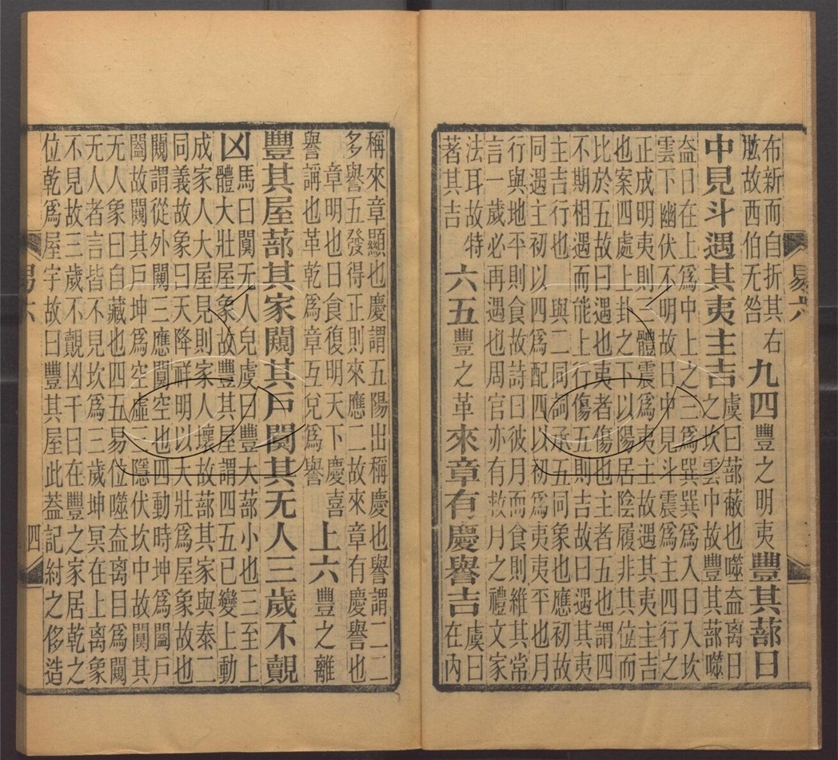 布新而自折其右
肱故西伯无咎　九四豐之明夷　豐其蔀日
中見斗遇其夷主吉　虞曰蔀蔽也噬益離日
之坎雲中故豐其蔀噬
益日在上為中上之三為巽巽為入日入坎
雲下幽伏不明故日中見斗震為主四行之
正成明夷則三體震為夷主故遇其夷主吉
也案四處上卦之下以陽居陰履非其位而
比於五故曰遇也夷者傷也主者五也謂四
不期相遇而能上行傷五則吉故曰遇其夷
主吉行也　與二同詞承五同象也應初故
同遇主初以四為配四以初為夷夷平也月
行與地平則食故詩曰彼月而食則維其常
言一歲必再遇也周官亦有救月之禮文家
法耳故特
著其吉　六五豐之革　來章有慶譽吉　虞曰
在內
稱來章顯也慶謂五陽出稱慶也譽謂二二
多譽五發得正則來應二故來章有慶譽也
章明也日食復明天下慶喜
譽譸也革乾為章互兌為譽　上六豐之離
豐其屋蔀其家闚其戶闃其无人三歲不覿
凶　馬曰闃无人皃虞曰豐大蔀小也三至上
體大壯屋象故豐其屋謂四五已變上動
成家人大屋見則家人壞故蔀其家與泰二
同義故象曰天降祥明以大壯為屋象故也
闚謂從外闚三應闃空也四動時坤為闔戶
闔故闚其戶坤為空虛三隱伏坎中故闃其
无人象曰自藏也四五易位噬益離目為闚
无人者言皆不見坎為三歲坤冥在上離象
不見故三歲不覿凶干曰在豐之家居乾之
位乾為屋宇故曰豐其屋此葢記紂之侈造
易六
四
易六